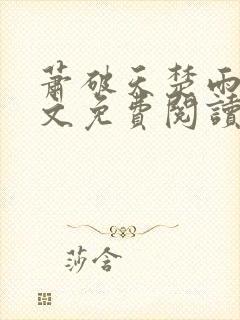 萧破天楚雨
文免費閱讀
莎含